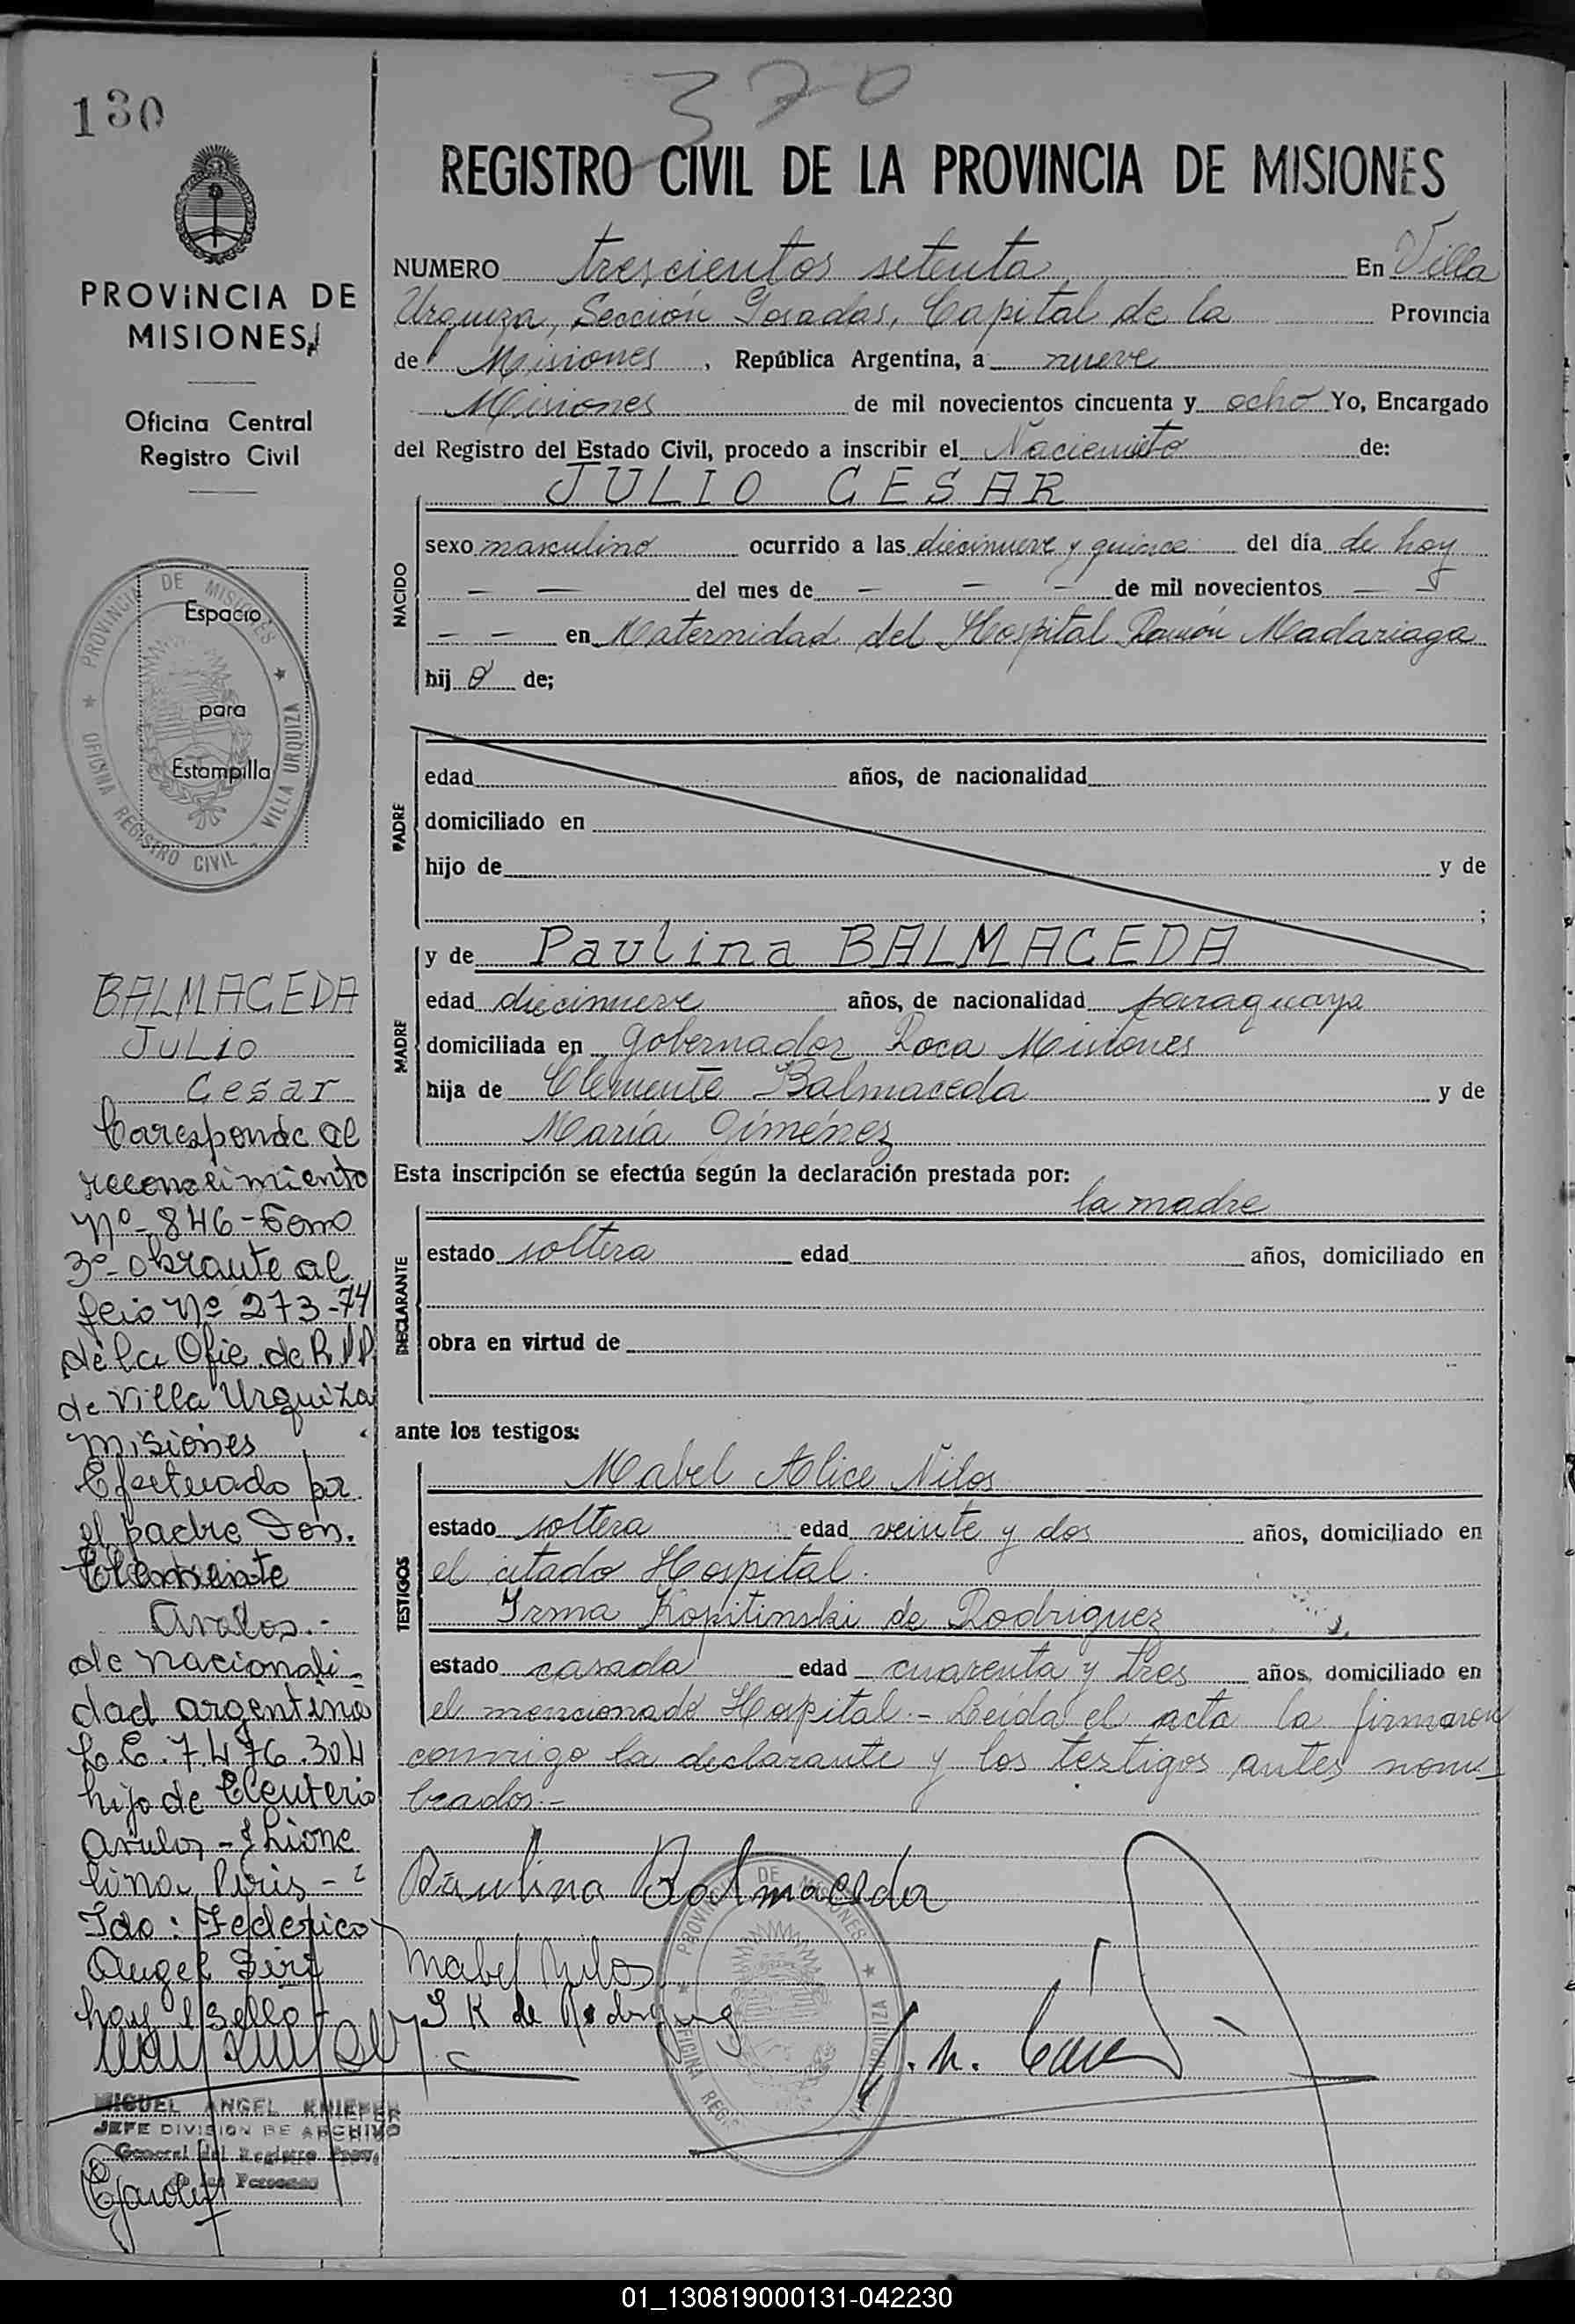 130
370
REGISTRO CIVIL DE LA PROVINCIA DE MISIONES
PROVINCIA DE
MISIONES
Oficina Central
Registro Civil
PROVINCIA DE MISIONES
OFICINA REGISTRO CIVIL - VILLA URQUIZA
Espacio
para
Estampilla
BALMACEDA
Julio
Cesar
Coresponde al
reconocimiento
Nº 846-Tomo
3º- obrante al
folio Nº 273-74
de la Ofic. de R.PP.
de Villa Urquiza
Misiones
Efectuado por
el padre Don.
Clemente
Avalos.-
de nacionali-
dad argentina
L.E. 7.476.304
hijo de Eleuterio
Avalos
Fdo: Federico
Angel
hay 1 sello-
MIGUEL ANGEL KNIEPER
JEFE DIVISION DE ARCHIVO
General del Registro Prov.
de las Personas
NUMERO trescientos setenta En Villa
Urquiza, Sección Posadas, Capital de la Provincia
de Misiones, República Argentina, a nueve
Misiones de mil novecientos cincuenta y ocho Yo, Encargado
del Registro del Estado Civil, procedo a inscribir el Nacimiento de:
JULIO CESAR
NACIDO
sexo masculino ocurrido a las diecinueve y quince del día de hoy
— — del mes de — — — de mil novecientos — —
— — en Maternidad del Hospital Ramón Madariaga
hij o de;
PADRE
edad años, de nacionalidad
domiciliado en
hijo de y de
;
MADRE
y de Paulina BALMACEDA
edad diecinueve años, de nacionalidad paraguaya
domiciliada en Gobernador Roca Misiones
hija de Clemente Balmaceda y de
María Giménez
Esta inscripción se efectúa según la declaración prestada por:
la madre
DECLARANTE
estado soltera edad años, domiciliado en
obra en virtud de
ante los testigos:
Mabel Alice Nilos
TESTIGOS
estado soltera edad veinte y dos años, domiciliado en
el citado Hospital.
Irma Kopitinski de Rodriguez
estado casada edad cuarenta y tres años, domiciliado en
el mencionado Hospital.- Leída el acta la firmaron
conmigo la declarante y los testigos antes nom-
brados.-
Paulina Balmaceda
Mabel Nilos
I K de Rodriguez
PROVINCIA DE MISIONES
OFICINA REGIS URQUIZA
01_130819000131-042230